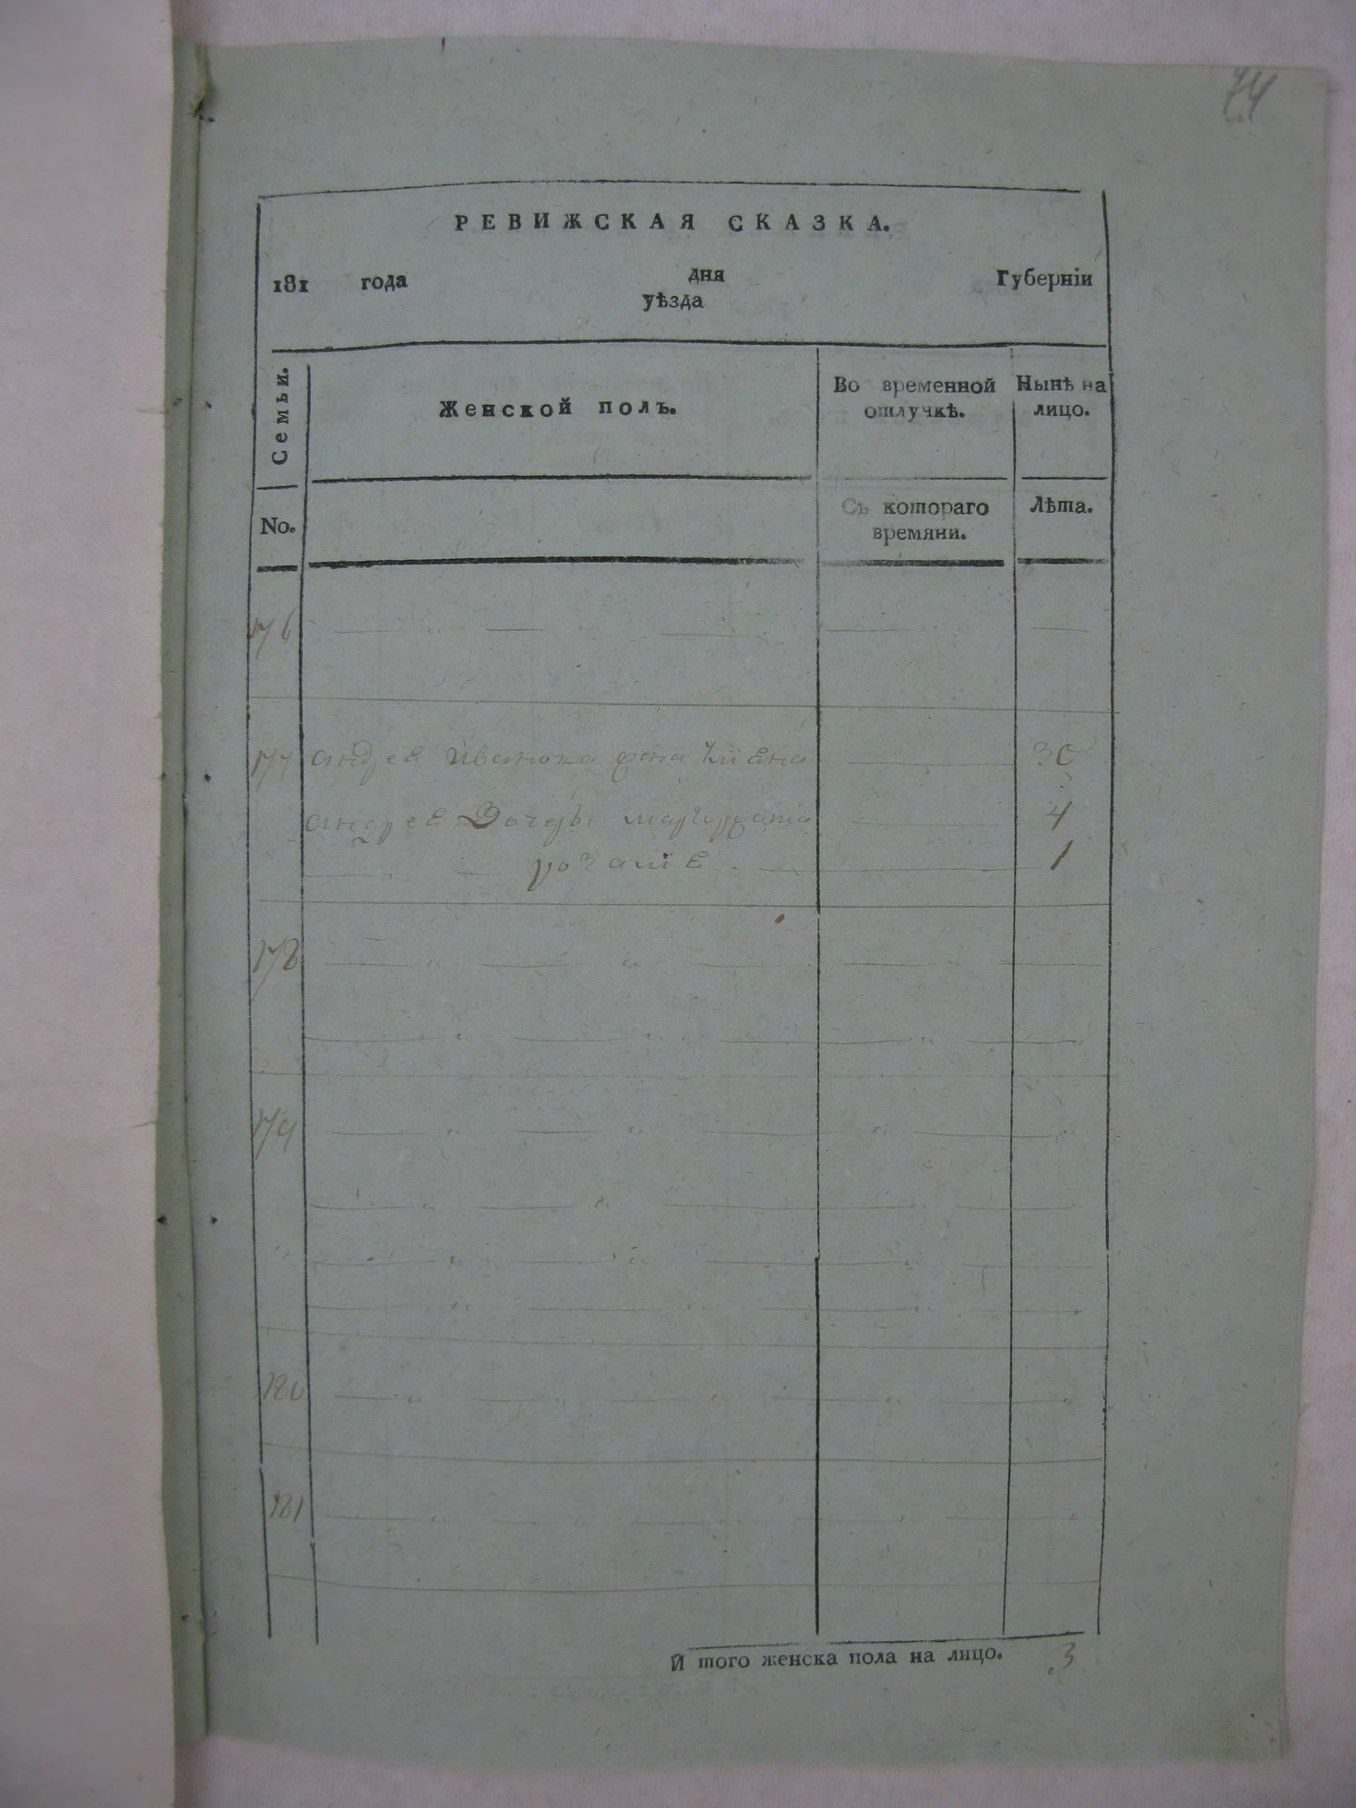 74
РЕВИЖСКАЯ СКАЗКА.
181 года дня Губерніи
уѣзда
Семьи. Женской полъ. Во временной отлучкѣ. Нынѣ на лицо.
No. Съ котораго времяни. Лѣта.
176
177 андрея Иванова жена 30
андрея Дочерь маргарата 4
розалiе 1
178
179
180
181
И того женска пола на лицо. 3